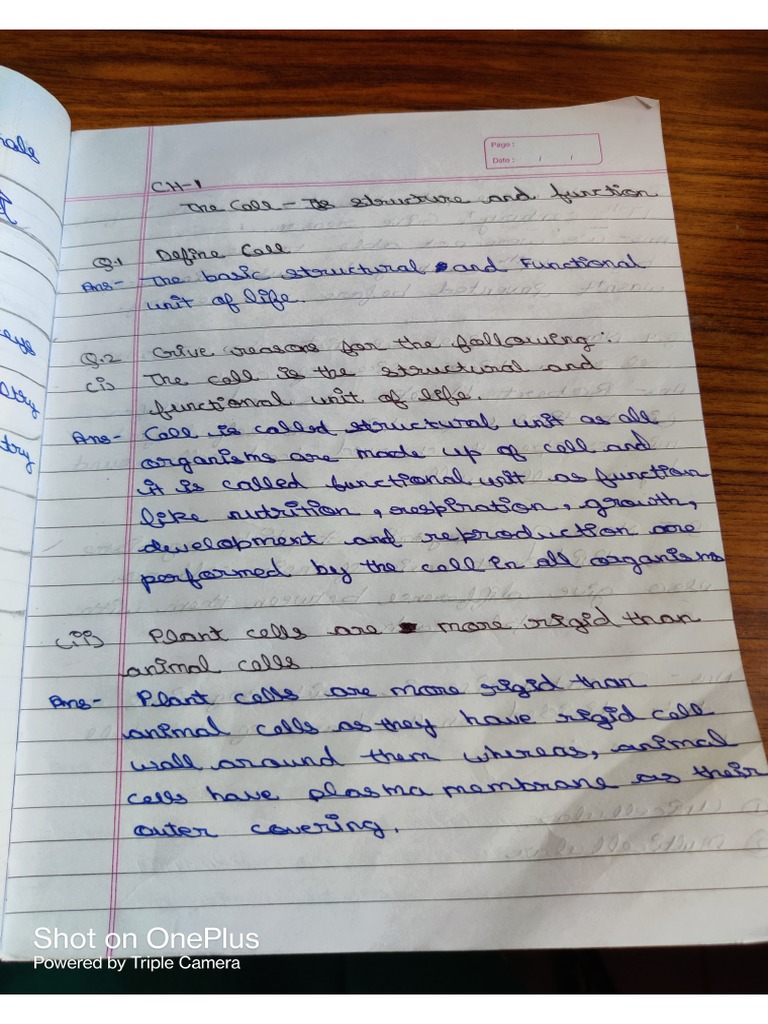 Page :
Date : / /
CH-1
The Cell - Its structure and function
Q.1 Define Cell
Ans- The basic structural and Functional
unit of life.
Q.2 Give reasons for the following:
(i) The cell is the structural and
functional unit of life.
Ans- Cell is called structural unit as all
organisms are made up of cell and
it is called functional unit as function
like nutrition, respiration, growth,
development and reproduction are
performed by the cell in all organisms
(ii) Plant cells are more rigid than
animal cells.
Ans- Plant cells are more rigid than
animal cells as they have rigid cell
wall around them whereas, animal
cells have plasma membrane as their
outer covering.
Shot on OnePlus
Powered by Triple Camera